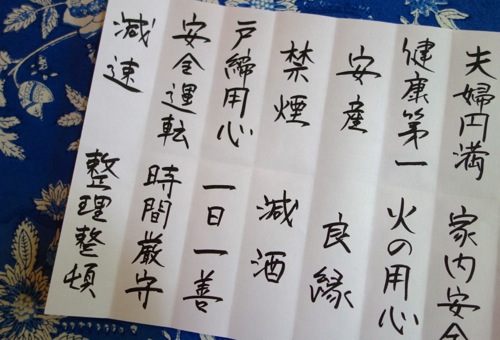 夫婦円満
健康第一
安産
禁煙
戸締用心
安全運転
減速
家内安全
火の用心
良縁
減酒
一日一善
時間厳守
整理整頓